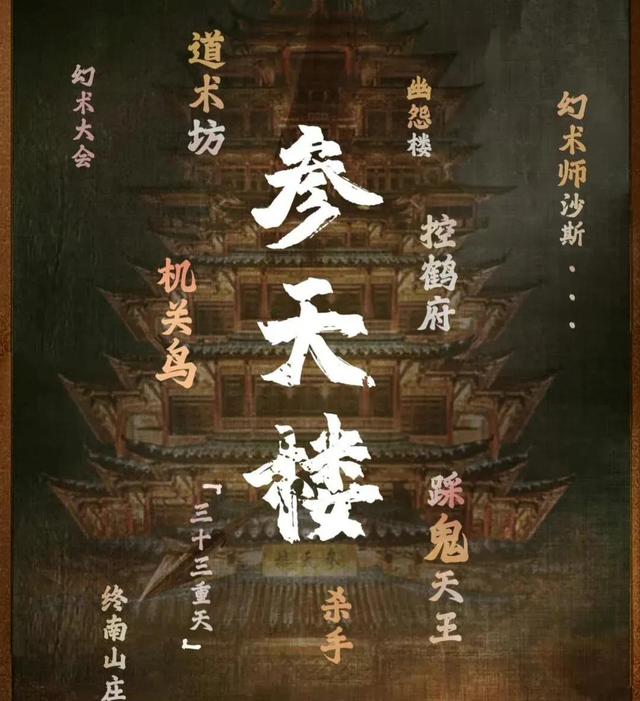 幻术师沙斯...
幽怨楼
控鹤府
踩鬼天王
参天楼
杀手
道术坊
机关鸟
「三十三重天」
幻术大会
终南山庄